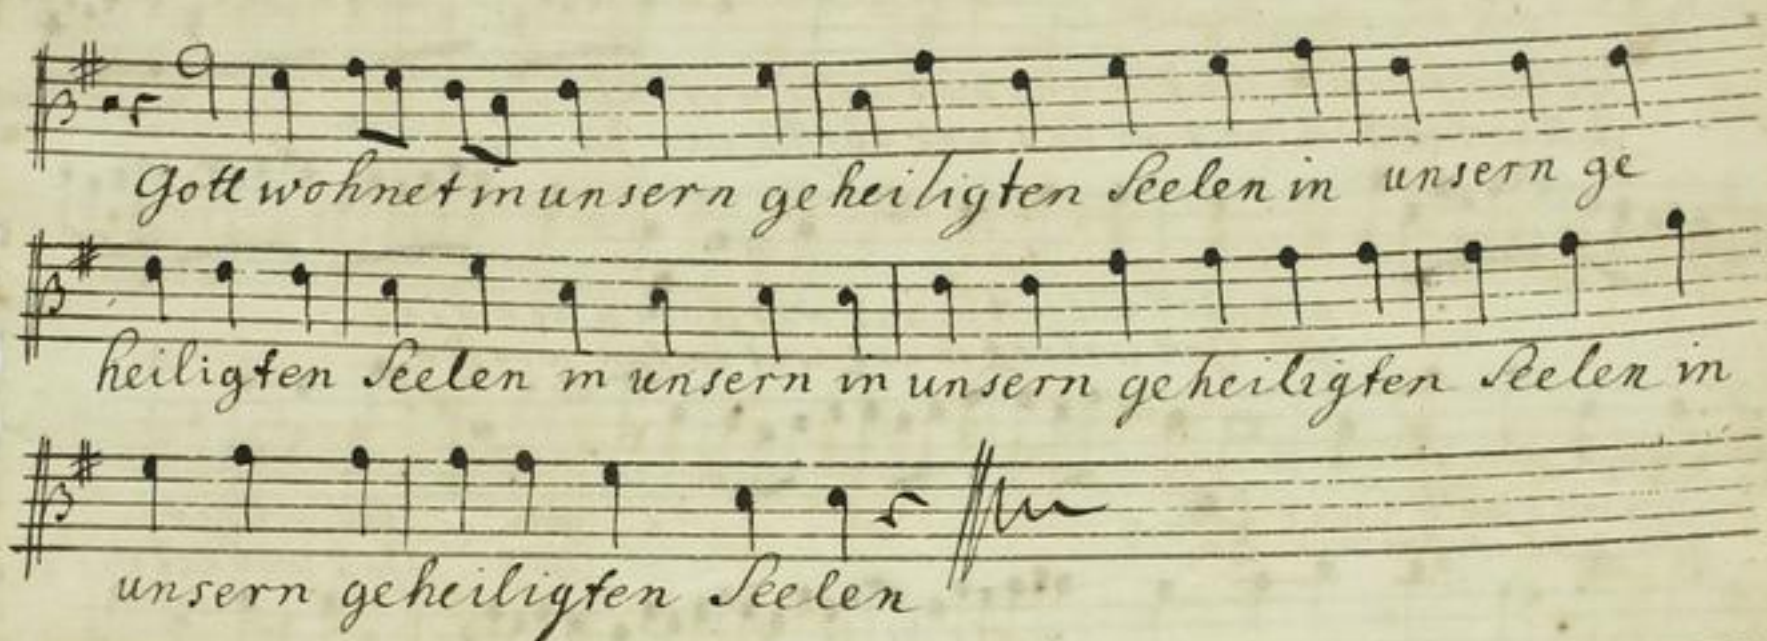 Gott wohnet in unsern geheiligten Seelen in unsern ge
heiligten Seelen in unsern in unsern geheiligten Seelen in
unsern geheiligten Seelen